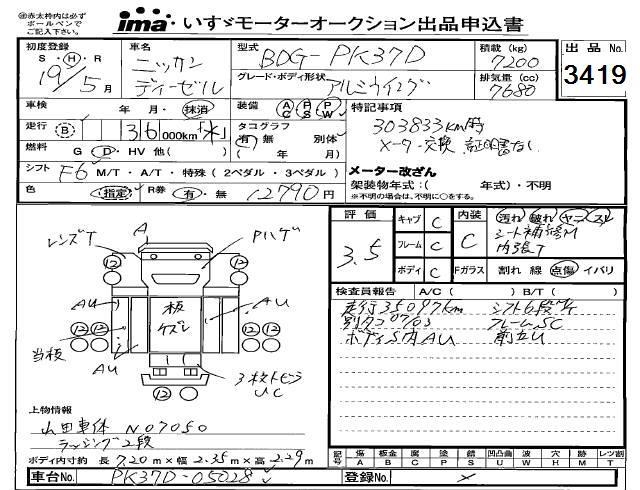 ※赤太枠内は必ず
ボールペンで
ご記入下さい。
ima・いすゞモーターオークション出品申込書
初度登録
S・H・R
19年5月
車名
ニッサン
ディーゼル
型式
BDG-PK37D
グレード・ボディ形状
アルミウイング
積載(kg)
7200
排気量(cc)
7680
出品No.
3419
車検 年・月・抹消
装備 AC PS PW
走行 B 36 000km
タコグラフ
有 無 別体
( 年 月)
燃料 G・D・HV 他( )
シフト F6 M/T・A/T・特殊(2ペダル・3ペダル)
色 (指定) R券 有・無 12790円
特記事項
303833km時
メーター交換 証明書なし
メーター改ざん
架装物年式:( 年式)・不明
※不明の場合は、不明に○をする。
評価
3.5
キャブ C
フレーム C
ボディ C
内装 C
Fガラス
汚れ・破れ・ヤニ・スレ
シート補修M
内張T
割れ 線 点傷 イバリ
検査員報告 A/C( ) B/T( )
走行35097km シフト6段M/T
別タコ0703 フレームSC
ボディS内AU 前立U
レンズT
A
Pハゲ
12 12
AU
板
ケズレ
AU
12 12
当板
AU
12
3枚トビラ
UC
上物情報
山田車体 N07050
ラッシング2段
ボディ内寸約 長7.20m×幅2.35m×高2.29m
記号 傷 A 板金 B 腐 C 塗 P 錆 S 凹凸曲 U 波 W 穴 H 跡 M レツ割 T
車台No. PK37D-05028
登録No.